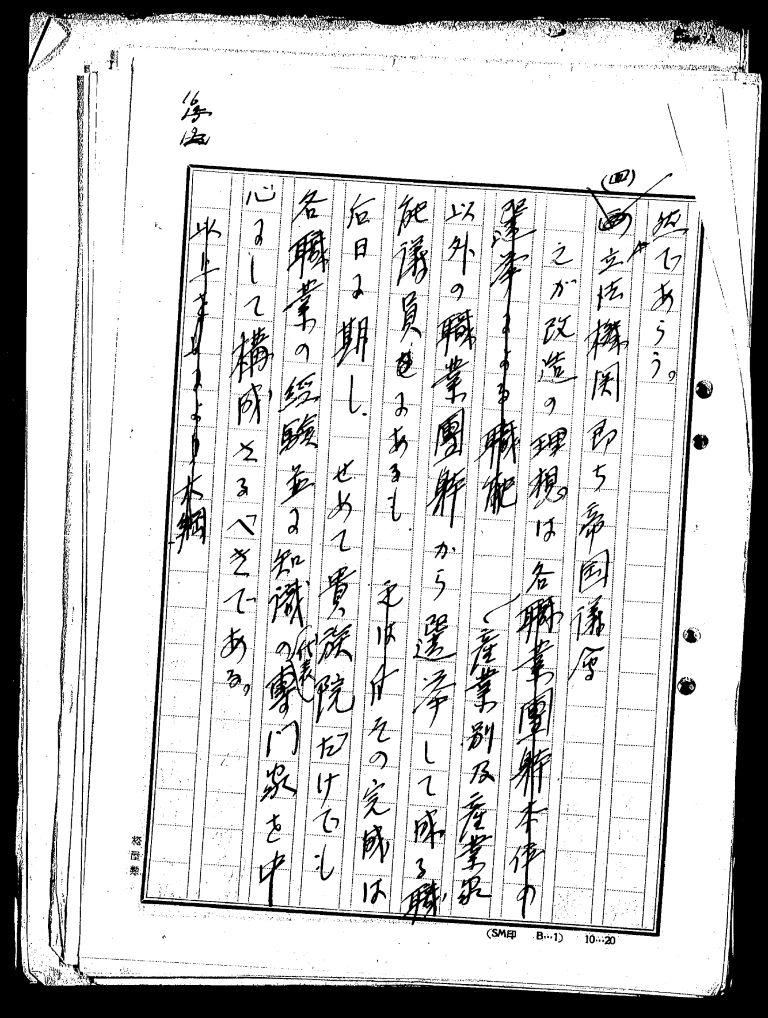 然であらう。
(四)
立法機関即ち帝国議会
之が改造の理想は各職業團体本位の
選挙による職能
産業別及産業家
以外の職業團体から選挙して成る職
能議員にあるも、之は
その完成は
后日に期し、せめて貴族院だけでも
各職業の経験並に知識の
代表
専門家を中
心にして構成さるべきである。
以上
大綱
(SM印 B…1) 10…20